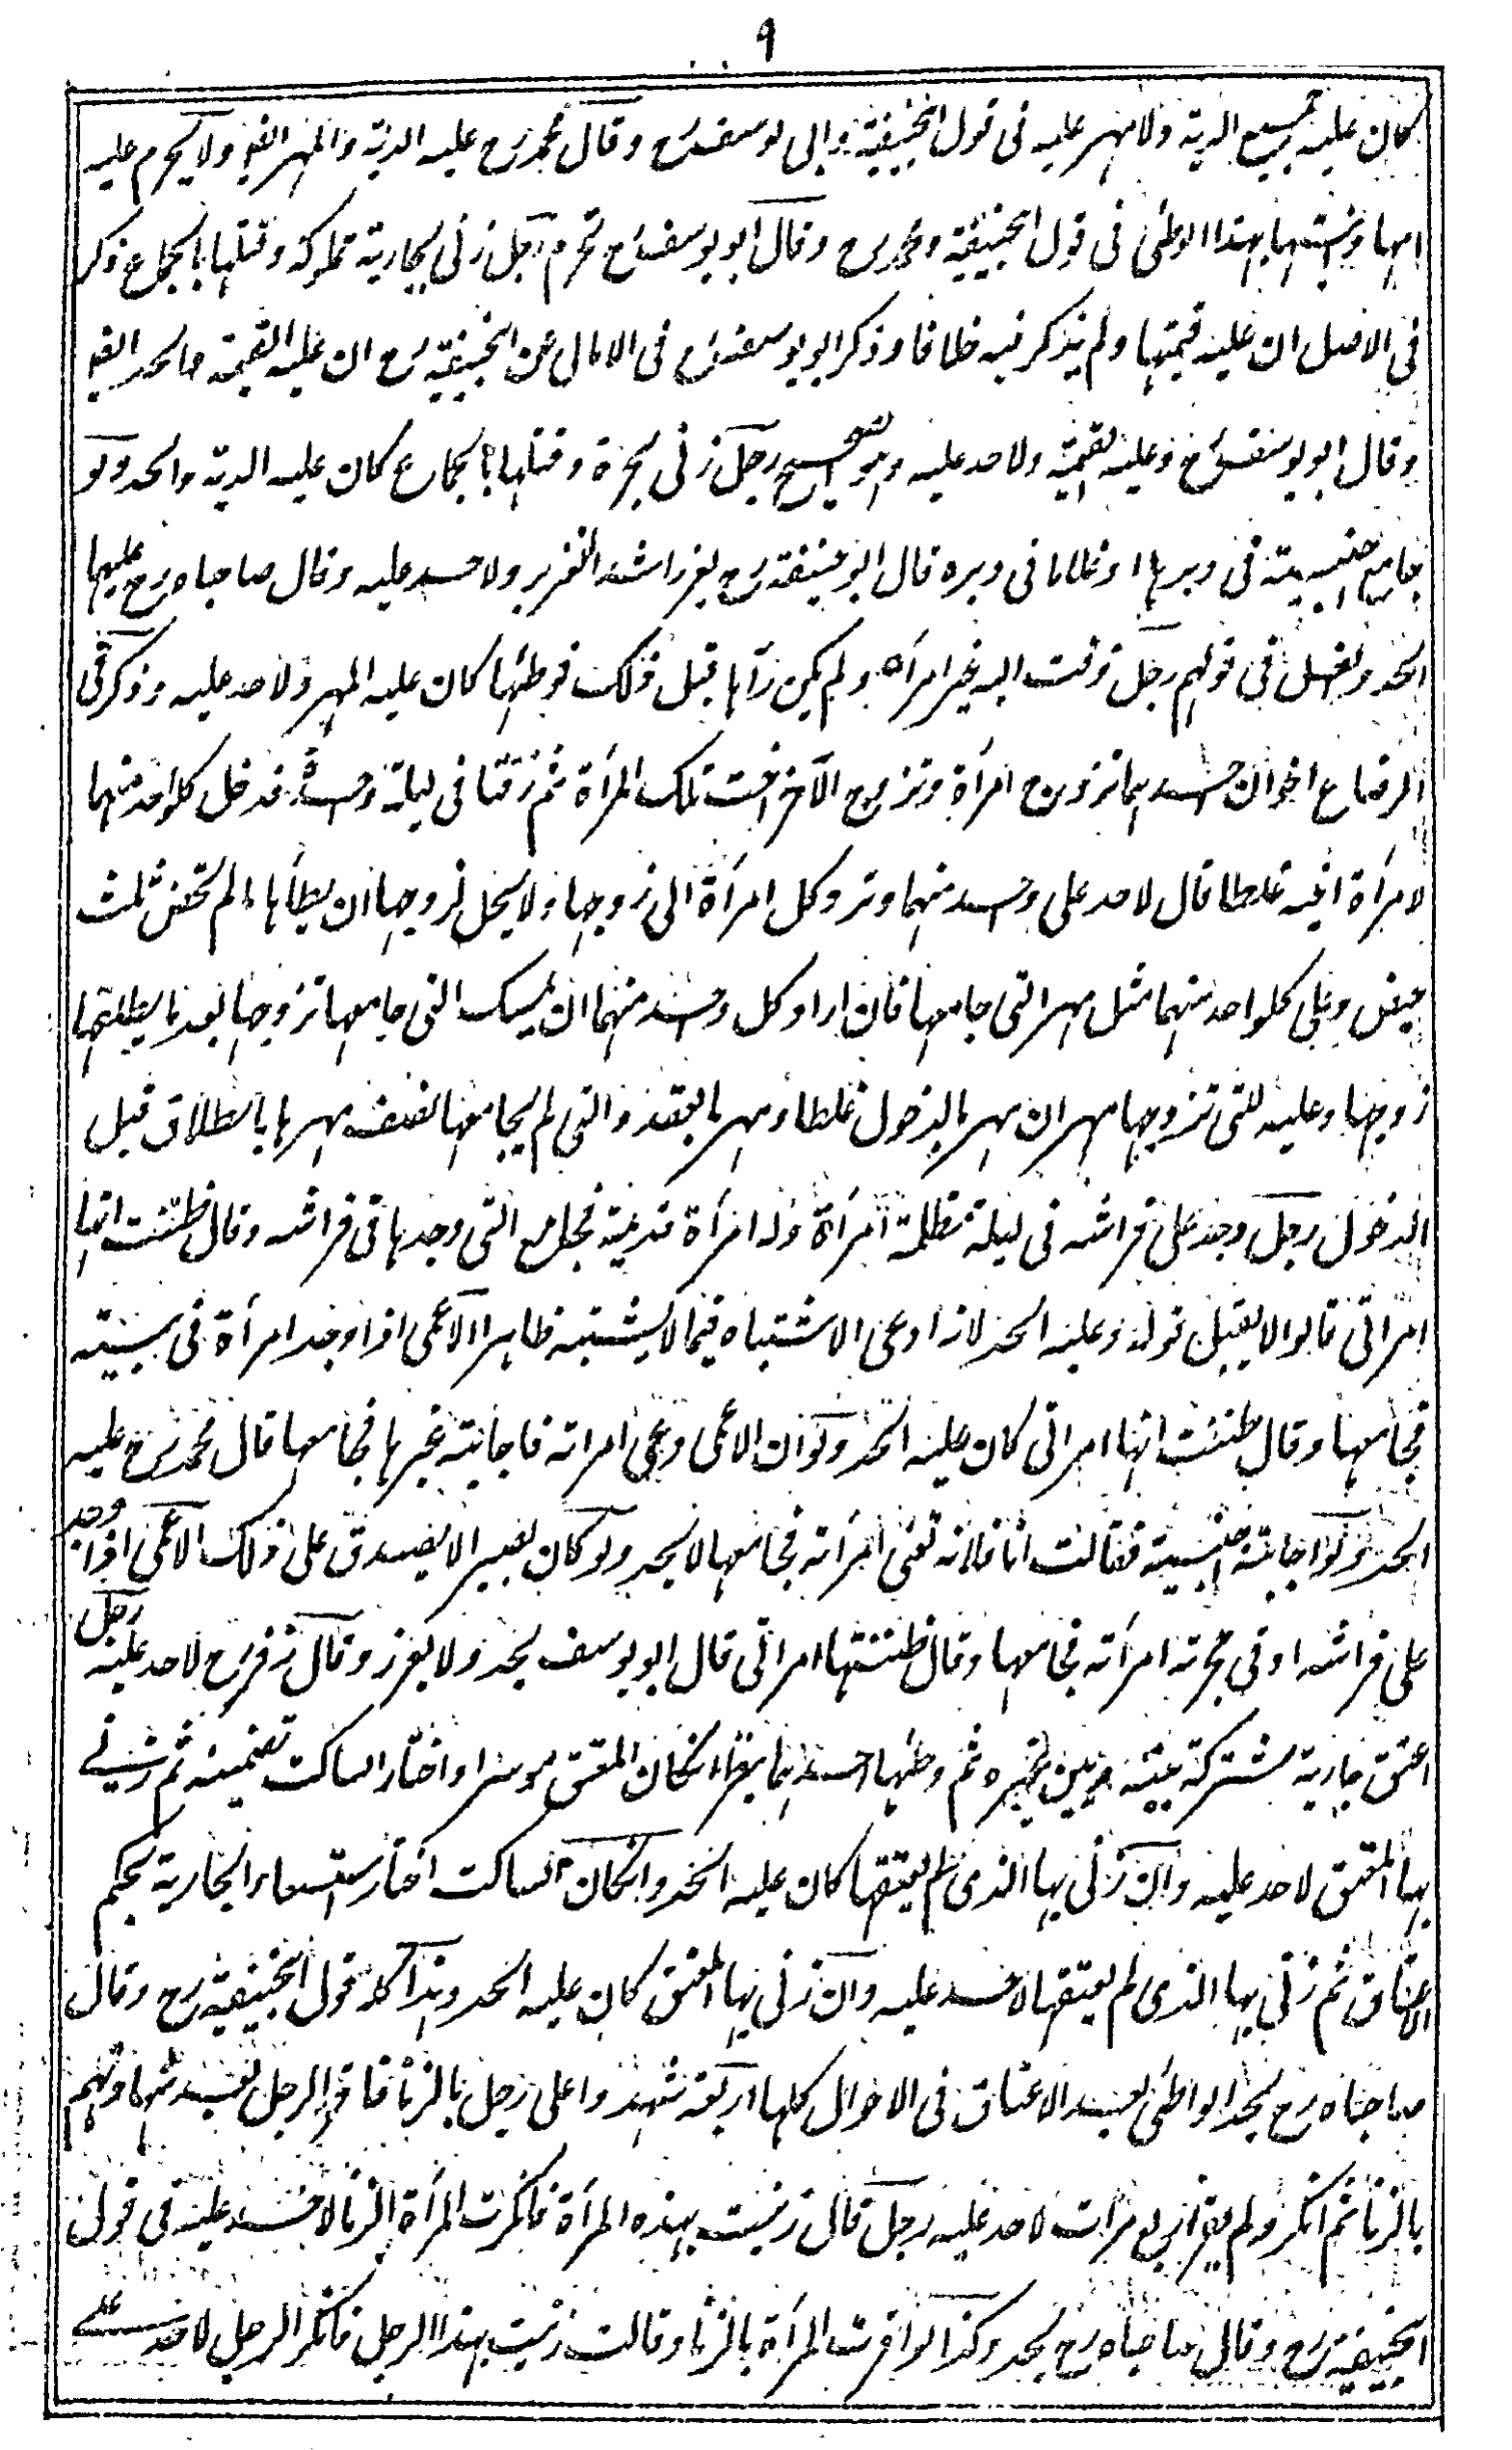 ٩
كان عليه جميع الدية ولا مهر عليه فى قول ابيحنيفة وابى يوسف رح وقال محمد رح عليه الدية والمهر ايضا ولا يحرم عليه
امها وبنتها بهذا الوطئ فى قول ابيحنيفة ومحمد رح وقال ابو يوسف رح تحرم رجل زنى بجارية مملوكة وقتلها بالجماع ذكر
فى الاصل ان عليه قيمتها ولم يذكر فيه خلافا وذكر ابو يوسف رح فى الامالى عن ابيحنيفة رح ان عليه القيمة والحد ايضا
وقال ابو يوسف رح وعليه القيمة ولا حد عليه وهو الصحيح رجل زنى بحرة وقتلها بالجماع كان عليه الدية والحد ولو
جامع اجنبية فى دبرها او غلاما فى دبره قال ابو حنيفة رح يعزر اشد التعزير ولا حد عليه وقال صاحباه رح عليهما
الحد والغسل فى قولهم رجل زفت اليه غير امرأته ولم يكن رآها قبل ذلك فوطئها كان عليه المهر ولا حد عليه وذكر فى
الرضاع اخوان احدهما تزوج امرأة وتزوج الآخر اخت تلك المرأة ثم زفتا فى ليلة واحدة فدخل كلواحد منهما
لامرأة اخيه غلطا قال لا حد على واحد منهما وترد كل امرأة الى زوجها ولا يحل لزوجها ان يطأها مالم تحض ثلث
حيض وعلى كلواحد منهما مثل مهر التى جامعها فان اراد كل واحد منهما ان يمسك التى جامعها تزوجها بعد ما يطلقها
زوجها وعليه للتى تزوجها مهران مهر بالدخول غلطا ومهر بالعقد والتى لم يجامعها نصف مهرها بالطلاق قبل
الدخول رجل وجد على فراشه فى ليلة مظلمة امرأة وله امرأة قديمة فجامع التى وجدها فى فراشه وقال ظننت انها
امرأتى قالوا لا يقبل قوله وعليه الحد لانه ادعى الاشتباه فيما لا يشتبه ظاهرا الاعمى اذا وجد امرأة فى بيته
فجامعها وقال ظننت انها امرأتى كان عليه الحد ولو ان الاعمى دعى امرأته فاجابته غيرها فجامعها قال محمد رح عليه
الحد ولو اجابته اجنبية فقالت انا فلانة تعنى امرأته فجامعها لا يحد ولو كان بصيرا لا يصدق على ذلك الاعمى اذا وجد
على فراشه او فى حجرته امرأته فجامعها وقال ظننتها امرأتى قال ابو يوسف يحد ولا يعزر وقال زفر رح لا حد عليه رجل
اعتق جارية مشتركة بينه وبين غيره ثم وطئها احدهما بعد انكان المعتق موسرا واختار الساكت تضمينه ثم زنى
بها المعتق لا حد عليه وان زنى بها الذى لم يعتقها كان عليه الحد وانكان الساكت اختار استسعاء الجارية بحكم
الاعتاق ثم زنى بها الذى لم يعتقها لا حد عليه وان زنى بها المعتق كان عليه الحد وهذا كله قول ابيحنيفة رح وقال
صاحباه رح يحد الواطئ بعد الاعتاق فى الاحوال كلها اربعة شهدوا على رجل بالزنا فاقر الرجل بعد شهادتهم
بالزنا ثم انكر ولم يقر اربع مرات لا حد عليه رجل قال زنيت بهذه المرأة فانكرت المرأة الزنا لا حد عليه فى قول
ابيحنيفة رح وقال صاحباه رح يحد وكذا لو اقرت المرأة بالزنا وقالت زنيت بهذا الرجل فانكر الرجل لا حد على